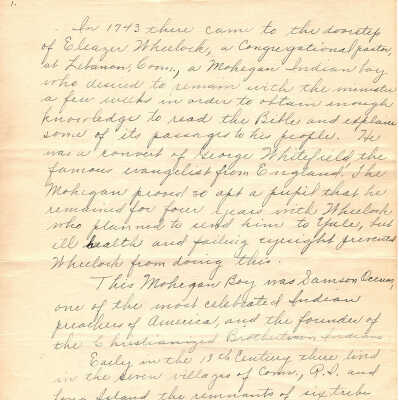 1.
In 1743 there came to the doorstep
of Eleazer Wheelock, a Congregational pastor,
at Lebanon, Conn., a Mohegan Indian boy
who desired to remain with the minister
a few weeks in order to obtain enough
knowledge to read the Bible and explain
some of its passages to his people. He
was a convert of George Whitefield, the
famous evangelist from England. The
Mohegan proved so apt a pupil that he
remained for four years with Wheelock
who planned to send him to Yale, but
ill health and failing eyesight prevented
Wheelock from doing this.
This Mohegan Boy was Samson Occum,
one of the most celebrated Indian
preachers of America, and the founder of
the Christianized Brothertown Indians.
Early in the 18th Century there lived
in the seven villages of Conn., R.I. and
Long Island the remnants of six tribe